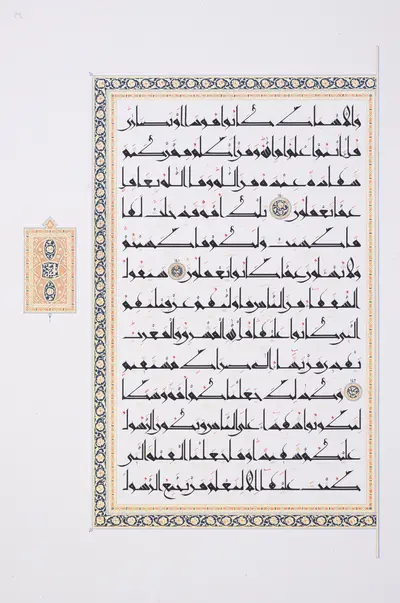 والأسباط كانوا هودا أو نصارى
قل ءأنتم أعلم أم الله ومن أظلم ممن كتم
شهادة عنده من الله وما الله بغافل
عما تعملون تلك أمة قد خلت لها
ما كسبت ولكم ما كسبتم
ولا تسألون عما كانوا يعملون سيقول
السفهاء من الناس ما ولاهم عن قبلتهم
التي كانوا عليها قل لله المشرق والمغرب
يهدي من يشاء إلى صراط مستقيم
وكذلك جعلناكم أمة وسطا
لتكونوا شهداء على الناس ويكون الرسول
عليكم شهيدا وما جعلنا القبلة التي
كنت عليها إلا لنعلم من يتبع الرسول